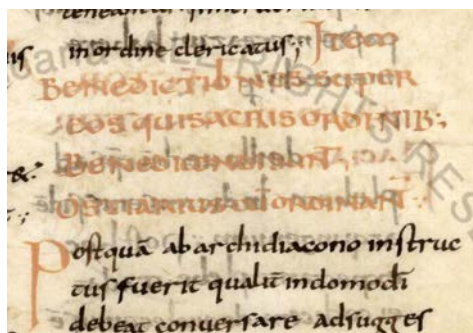 in ordine clericatus; Item
BENEDICTIO NES SUPER
EOS QUI SACRIS ORDINIB;
BENEDICENDI SUNT
OSTIARIUS CU ORDINAT̄
Postquā ab archidiacono instruc
tus fuerit qualit̄ in domo dī
debeat conversare adsugges